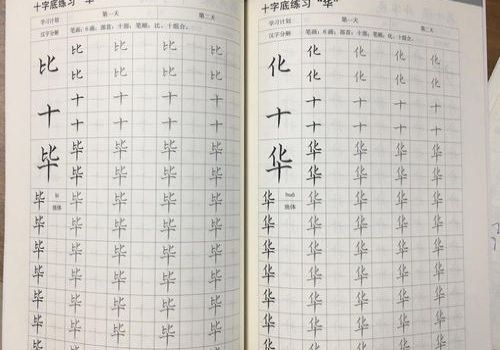 十字底练习
学习计划 第一天 第二天
汉字分解 笔画：6画；部首：十部；笔顺：比、十组合。
比 比 比 比 比
比 比 比 比
十 十 十 十 十
十 十 十 十
毕 毕 毕 毕 毕
毕 毕 毕 毕
毕 毕 毕 毕 毕
毕 毕 毕 毕 毕
毕 毕 毕 毕 毕
毕 毕 毕 毕 毕
毕 毕 毕 毕 毕
毕 毕 毕 毕 毕
毕 毕 毕 毕 毕
十字底练习 “华”
学习计划 第一天 第二天
汉字分解 笔画：6画；部首：十部；笔顺：化、十组合。
化 化 化 化 化
化 化 化 化
十 十 十 十 十
十 十 十 十
华 华 华 华 华
华 华 华 华
华 huá 华 华 华 华
独体
华 华 华 华 华
华 华 华 华 华
华 华 华 华 华
华 华 华 华 华
华 华 华 华 华
华 华 华 华 华